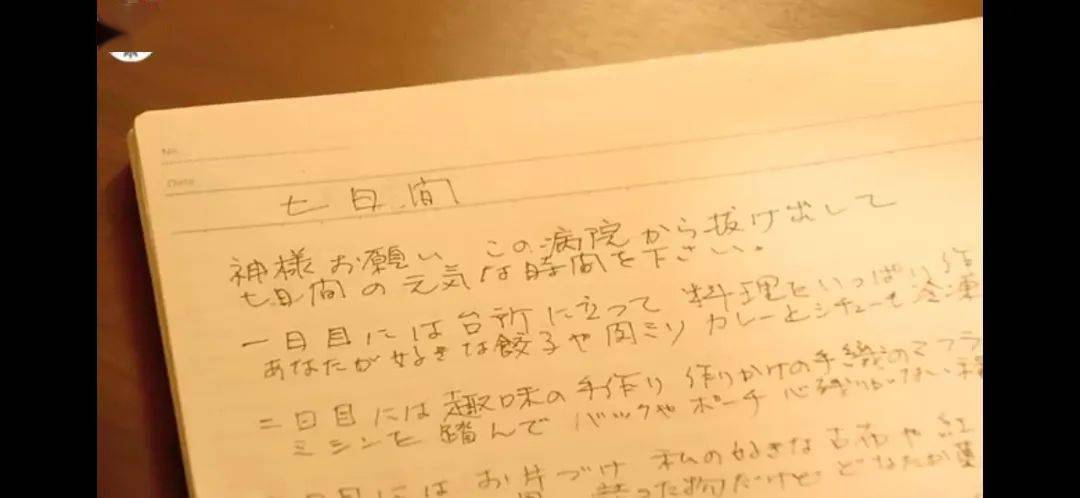 No.
Date
七日間
神様お願い この病院から抜け出して
七日間の元気な時間を下さい。
一日目には台所に立って 料理をいっぱい作
あなたが好きな餃子や肉ミソ カレーとシチューも冷凍
二日目には趣味の手作り 作りかけの手織のマフラ
ミシンを踏んで バックやポーチ 心残りがない
日目には お片づけ 私の好きな古布や紅
った物だけど どなたか